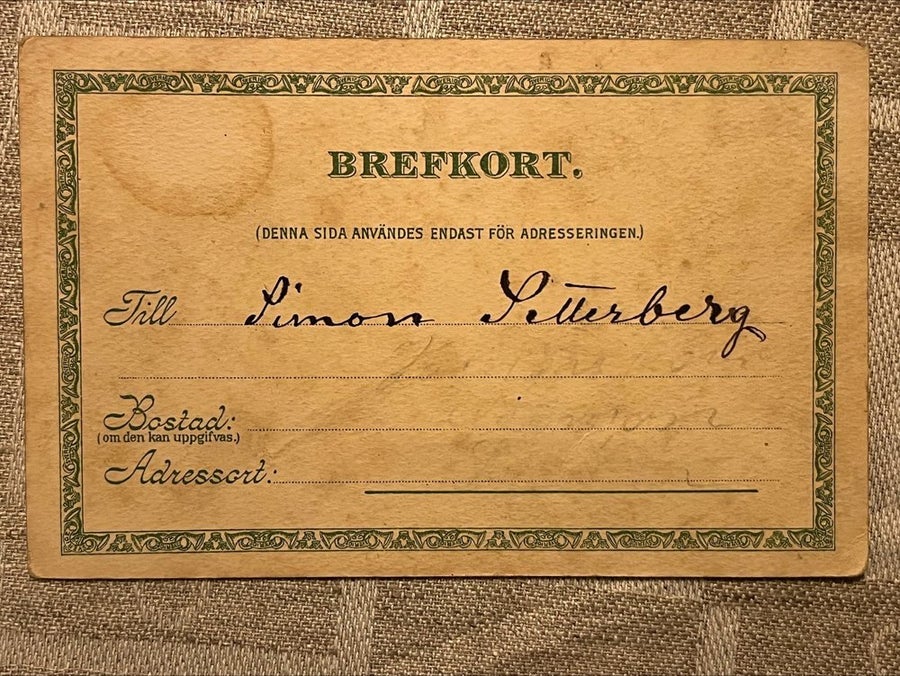 BREFKORT.
(DENNA SIDA ANVÄNDES ENDAST FÖR ADRESSERINGEN.)
Till Simon Setterberg
Bostad:
(om den kan uppgifvas.)
Adressort: